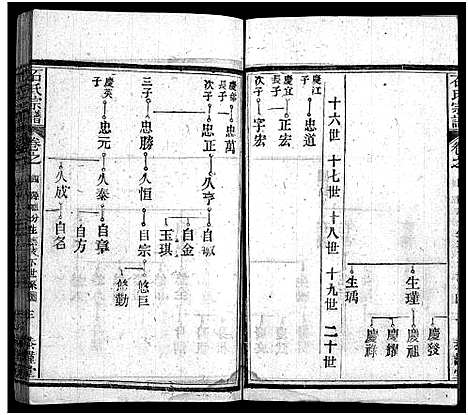 石氏宗譜 卷之
生瑾 慶發
慶祖
慶耀
慶祥
生瑀
十六世 十七世 十八世 十九世 二十世
慶江子 忠道
慶宜長子 正宏
次子 字宏
慶彰長子 忠萬
次子 忠正 久亨 自
自金
玉琪
三子 忠勝 久恒 自宗 悠巨
悠勤
慶英子 忠元 久泰 自章
自方
久成 自名
石氏宗譜 卷之